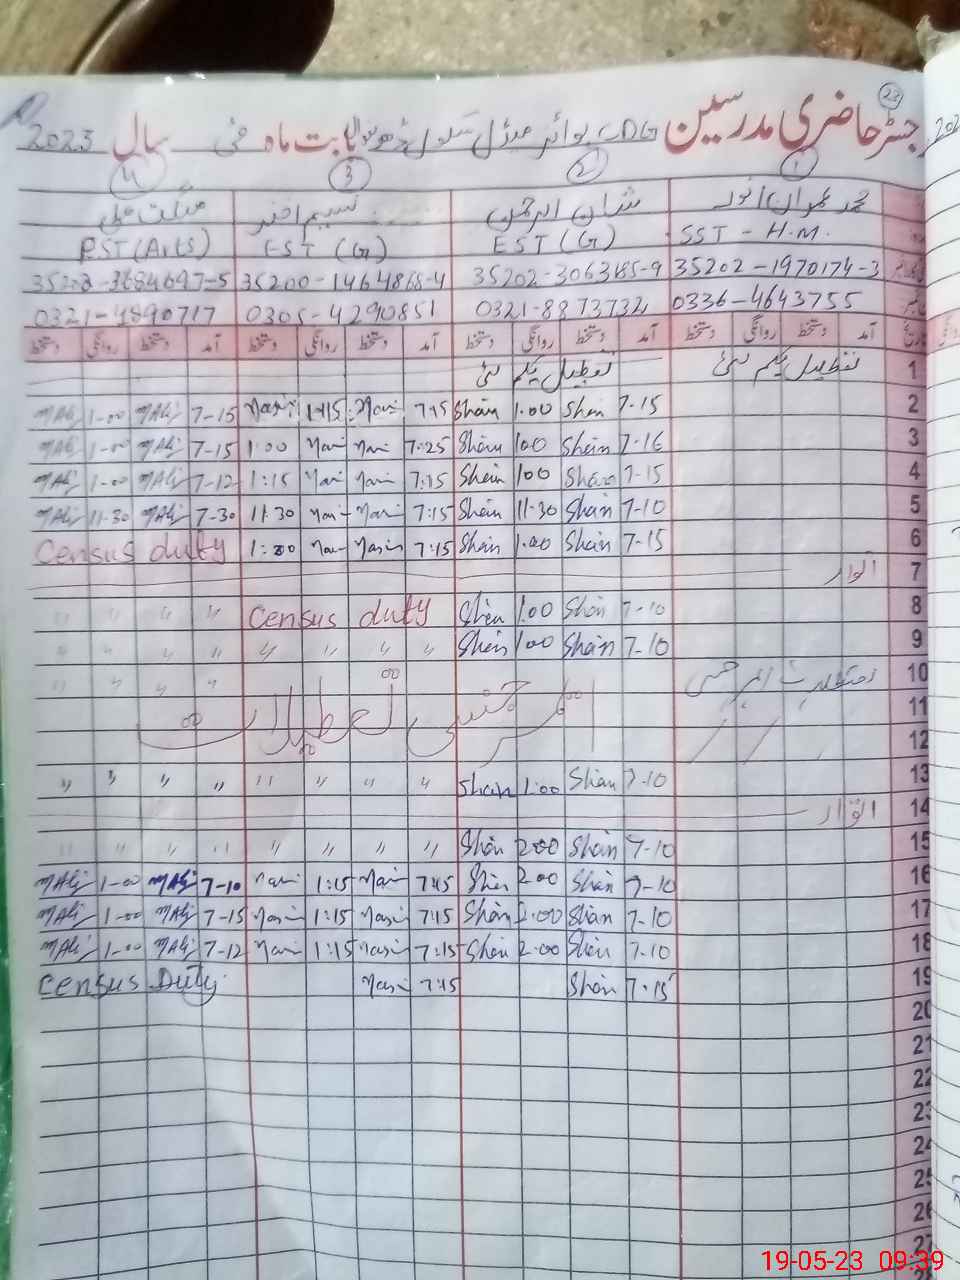 23
رجسٹر حاضری مدرسین CDG بوائز مڈل سکول بابت ماہ مئی سال 2023
1 2 3 4
محمد عمران انور شان الرحمن نسیم اختر
SST - H.M. EST (G) EST (G) PST (Arts)
35202-1970174-3 35202-3063185-9 35200-1464868-4 35202-3684697-5
0336-4643755 0321-8873732 0305-4290851 0321-4890717
تاریخ آمد دستخط روانگی دستخط آمد دستخط روانگی دستخط آمد دستخط روانگی دستخط آمد دستخط روانگی دستخط
1 تعطیل یکم مئی تعطیل یکم مئی
2 7-15 Shan 1.00 Shan 7:15 Nasi 1:15 Nasi 7-15 MAli 1-00 MAli
3 7-16 Shan 1.00 Shan 7:25 Nasi Nasi 1:00 7-15 MAli 1-00 MAli
4 7-15 Shan 1.00 Shan 7:15 Nasi Nasi 1:15 7-12 MAli 1-00 MAli
5 7-10 Shan 11-30 Shan 7:15 Nasi Nasi 11:30 7-30 MAli 11-30 MAli
6 7-15 Shan 1.00 Shan 7:15 Nasi Nasi 1:00 Census duty
7 اتوار
8 7-10 Shan 1.00 Shan Census duty " " " "
9 7-10 Shan 1.00 Shan " " " " " " " "
10 تعطیلات ایمرجنسی ایمرجنسی تعطیلات " " " "
11
12
13 7-10 Shan 1.00 Shan " " " " " " " "
14 اتوار
15 7-10 Shan 2.00 Shan " " " " " " " "
16 7-10 Shan 2.00 Shan 7:15 Nasi 1:15 Nasi 7-10 MAli 1-00 MAli
17 7-10 Shan 2.00 Shan 7:15 Nasi 1:15 Nasi 7-15 MAli 1-00 MAli
18 7-10 Shan 2.00 Shan 7:15 Nasi 1:15 Nasi 7-12 MAli 1-00 MAli
19 7-15 Shan 7:15 Nasi Census Duty
20
21
22
23
24
25
26
27
19-05-23 09:39